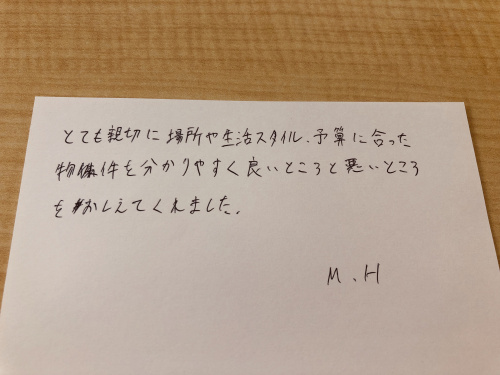 とても親切に場所や生活スタイル、予算に合った
物件を分かりやすく良いところと悪いところ
をおしえてくれました。
M.H